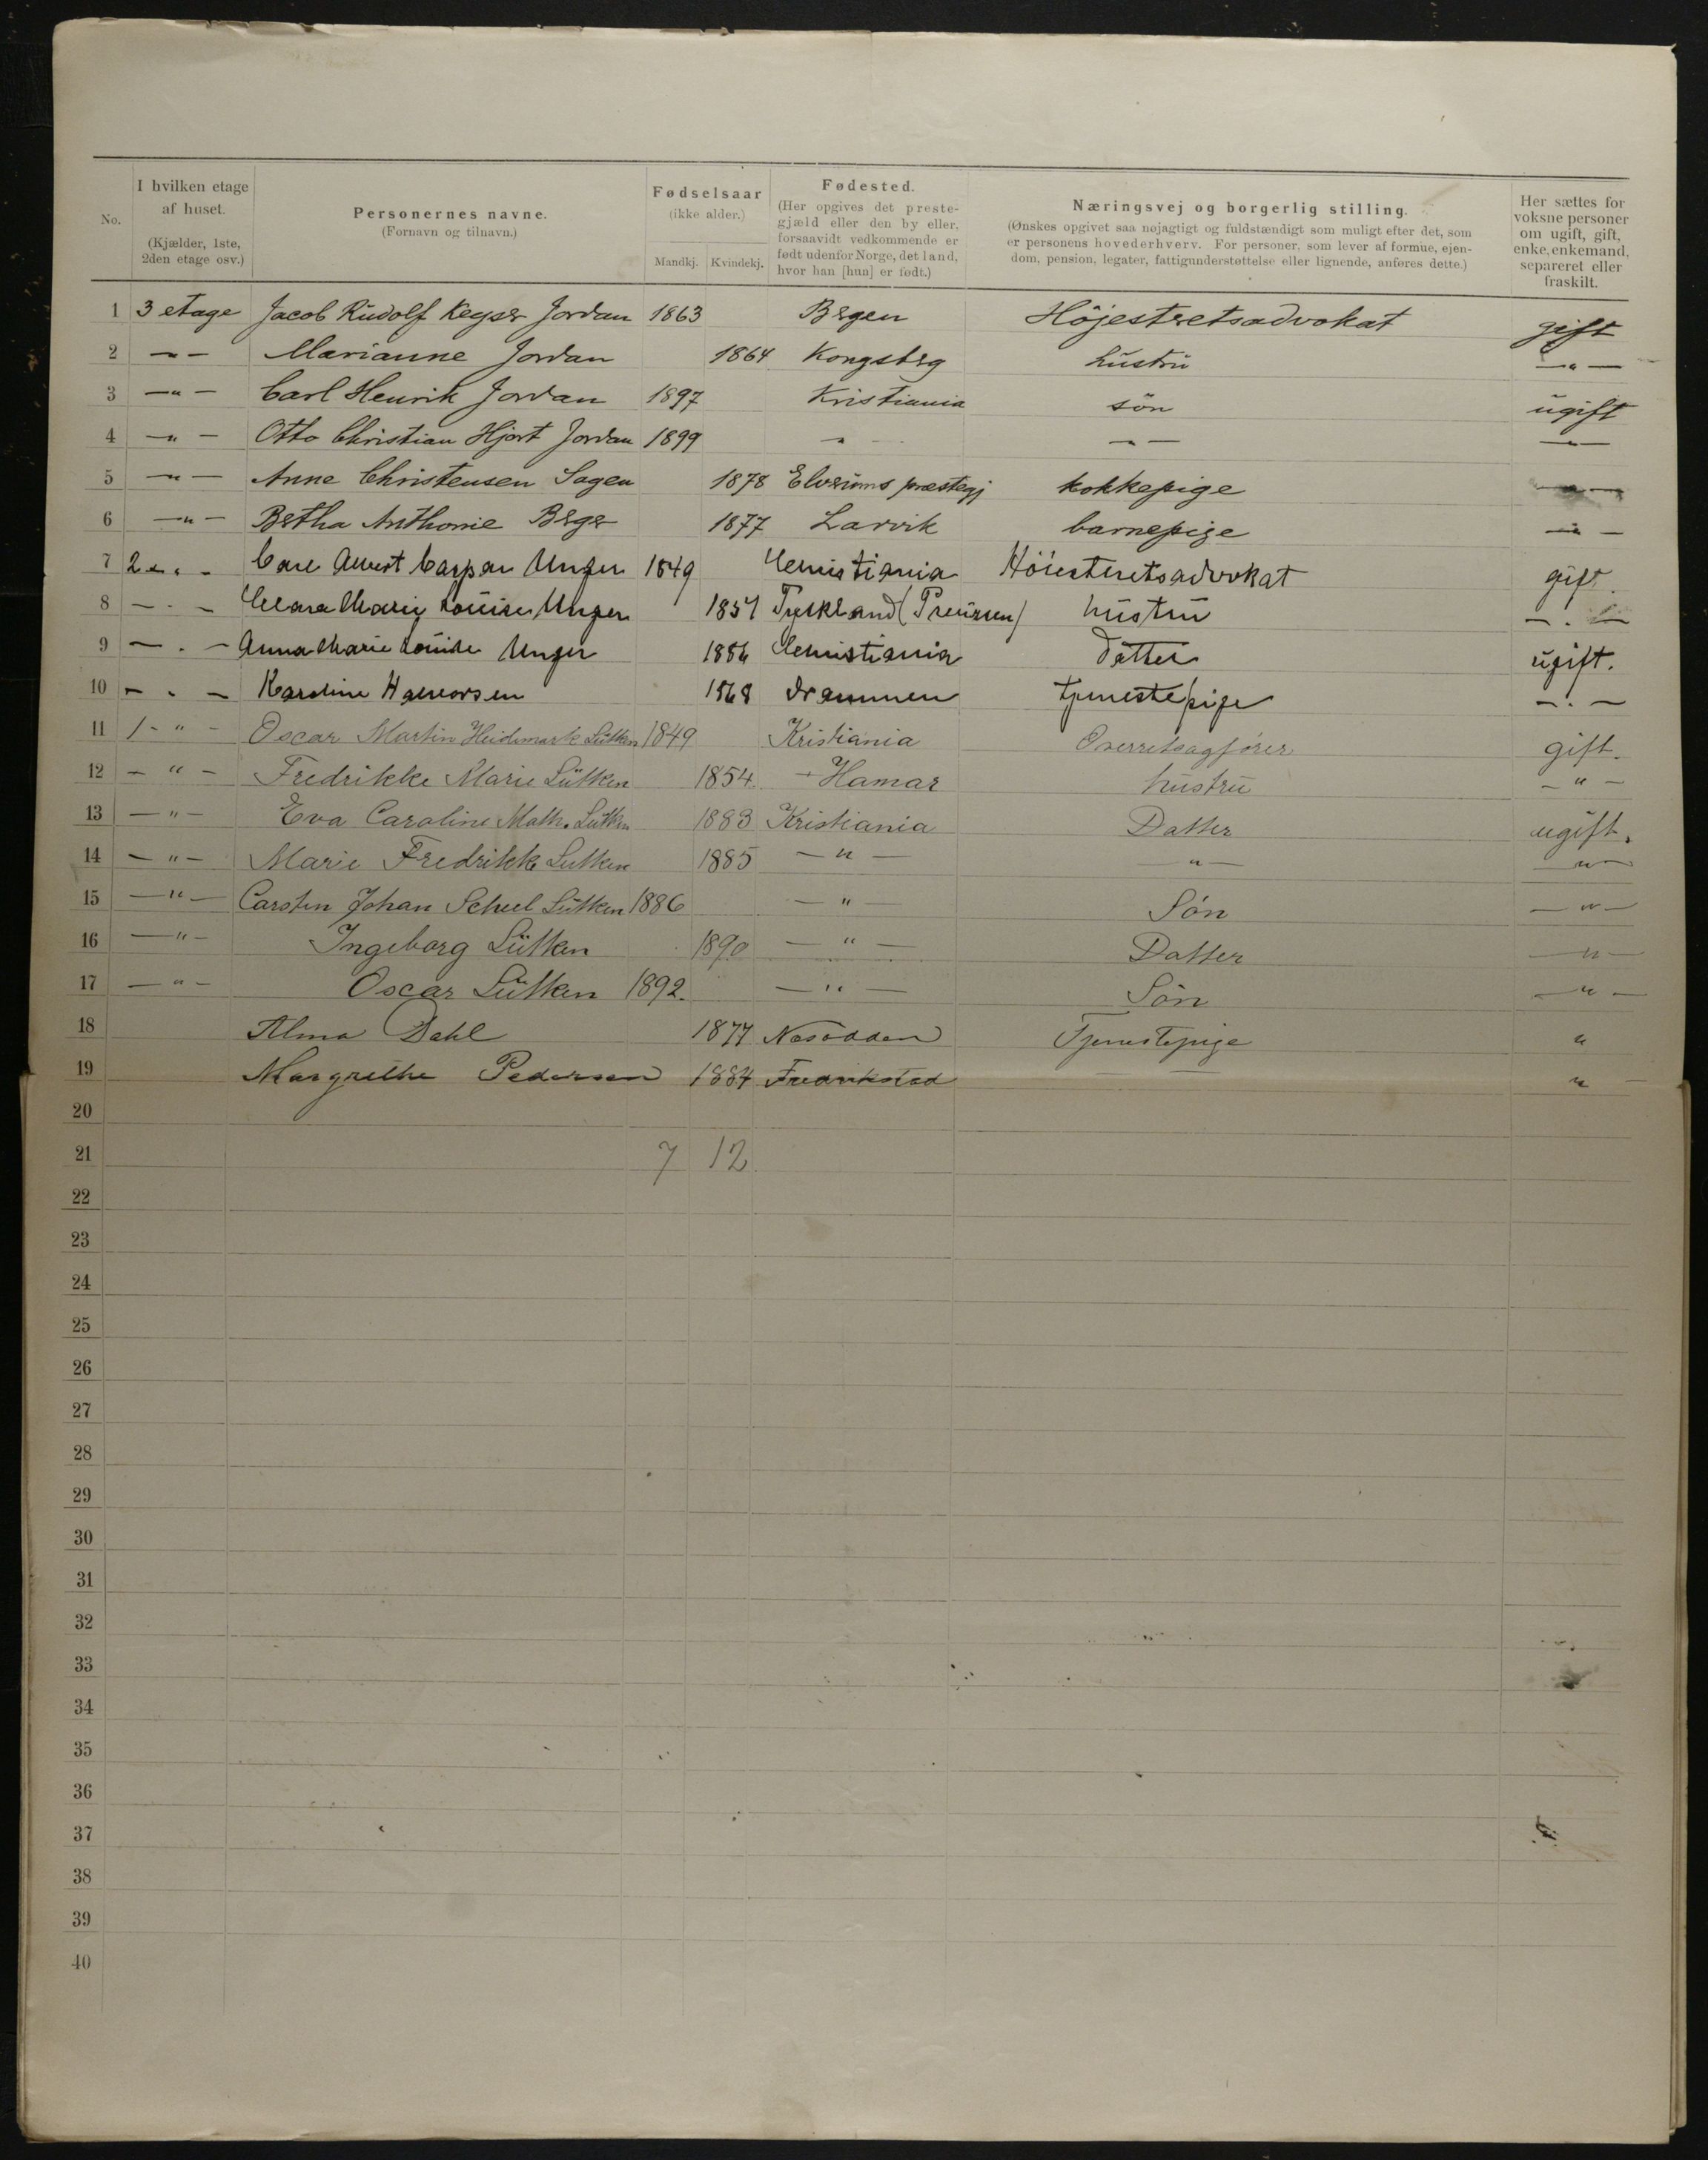 No. | I hvilken etage af huset. (Kjælder, 1ste, 2den etage osv.) | Personernes navne. (Fornavn og tilnavn.) | Fødselsaar (ikke alder.) Mandkj. Kvindekj. | Fødested. (Her opgives det prestegjæld eller den by eller, forsaavidt vedkommende er født udenfor Norge, det land, hvor han [hun] er født.) | Næringsvej og borgerlig stilling. (Ønskes opgivet saa nøjagtigt og fuldstændigt som muligt efter det, som er personens hovederhverv. For personer, som lever af formue, ejendom, pension, legater, fattigunderstøttelse eller lignende, anføres dette.) | Her sættes for voksne personer om ugift, gift, enke, enkemand, separeret eller fraskilt.
1 3 etage Jacob Rudolf Keyser Jordan 1863 Bergen Höjesteretsadvokat gift
2 — " — Marianne Jordan 1864 Kongsberg hustru — " —
3 — " — Carl Henrik Jordan 1897 Kristiania sön ugift
4 — " — Otto Christian Hjort Jordan 1899 " — " — — " —
5 — " — Anne Christensen Sagen 1878 Elverums præstegj kokkepige — " —
6 — " — Bertha Anthonie Berger 1877 Larvik barnepige — " —
7 2 — " — Carl Albert Caspar Unger 1849 Christiania Höiesteretsadvokat gift.
8 — " — Clara Marie Louise Unger 1857 Tyskland (Preussen) hustru — " —
9 — " — Anna Marie Louise Unger 1886 Christiania datter ugift.
10 — " — Karoline Halvorsen 1868 Drammen tjenestepige — " —
11 1 — " — Oscar Martin Heidemark Lütken 1849 Kristiania Overretsagfører gift.
12 — " — Fredrikke Marie Lütken 1854 Hamar hustru — " —
13 — " — Eva Caroline Math. Lütken 1883 Kristiania Datter ugift.
14 — " — Marie Fredrikke Lütken 1885 — " — — " — — " —
15 — " — Carsten Johan Scheel Lütken 1886 — " — Søn — " —
16 — " — Ingeborg Lütken 1890 — " — Datter — " —
17 — " — Oscar Lütken 1892. — " — Søn — " —
18 Alma Dahl 1877 Nesodden Tjenestepige "
19 Margrethe Pedersen 1884 Fredrikstad — — " —
20
21 7 12
22
23
24
25
26
27
28
29
30
31
32
33
34
35
36
37
38
39
40